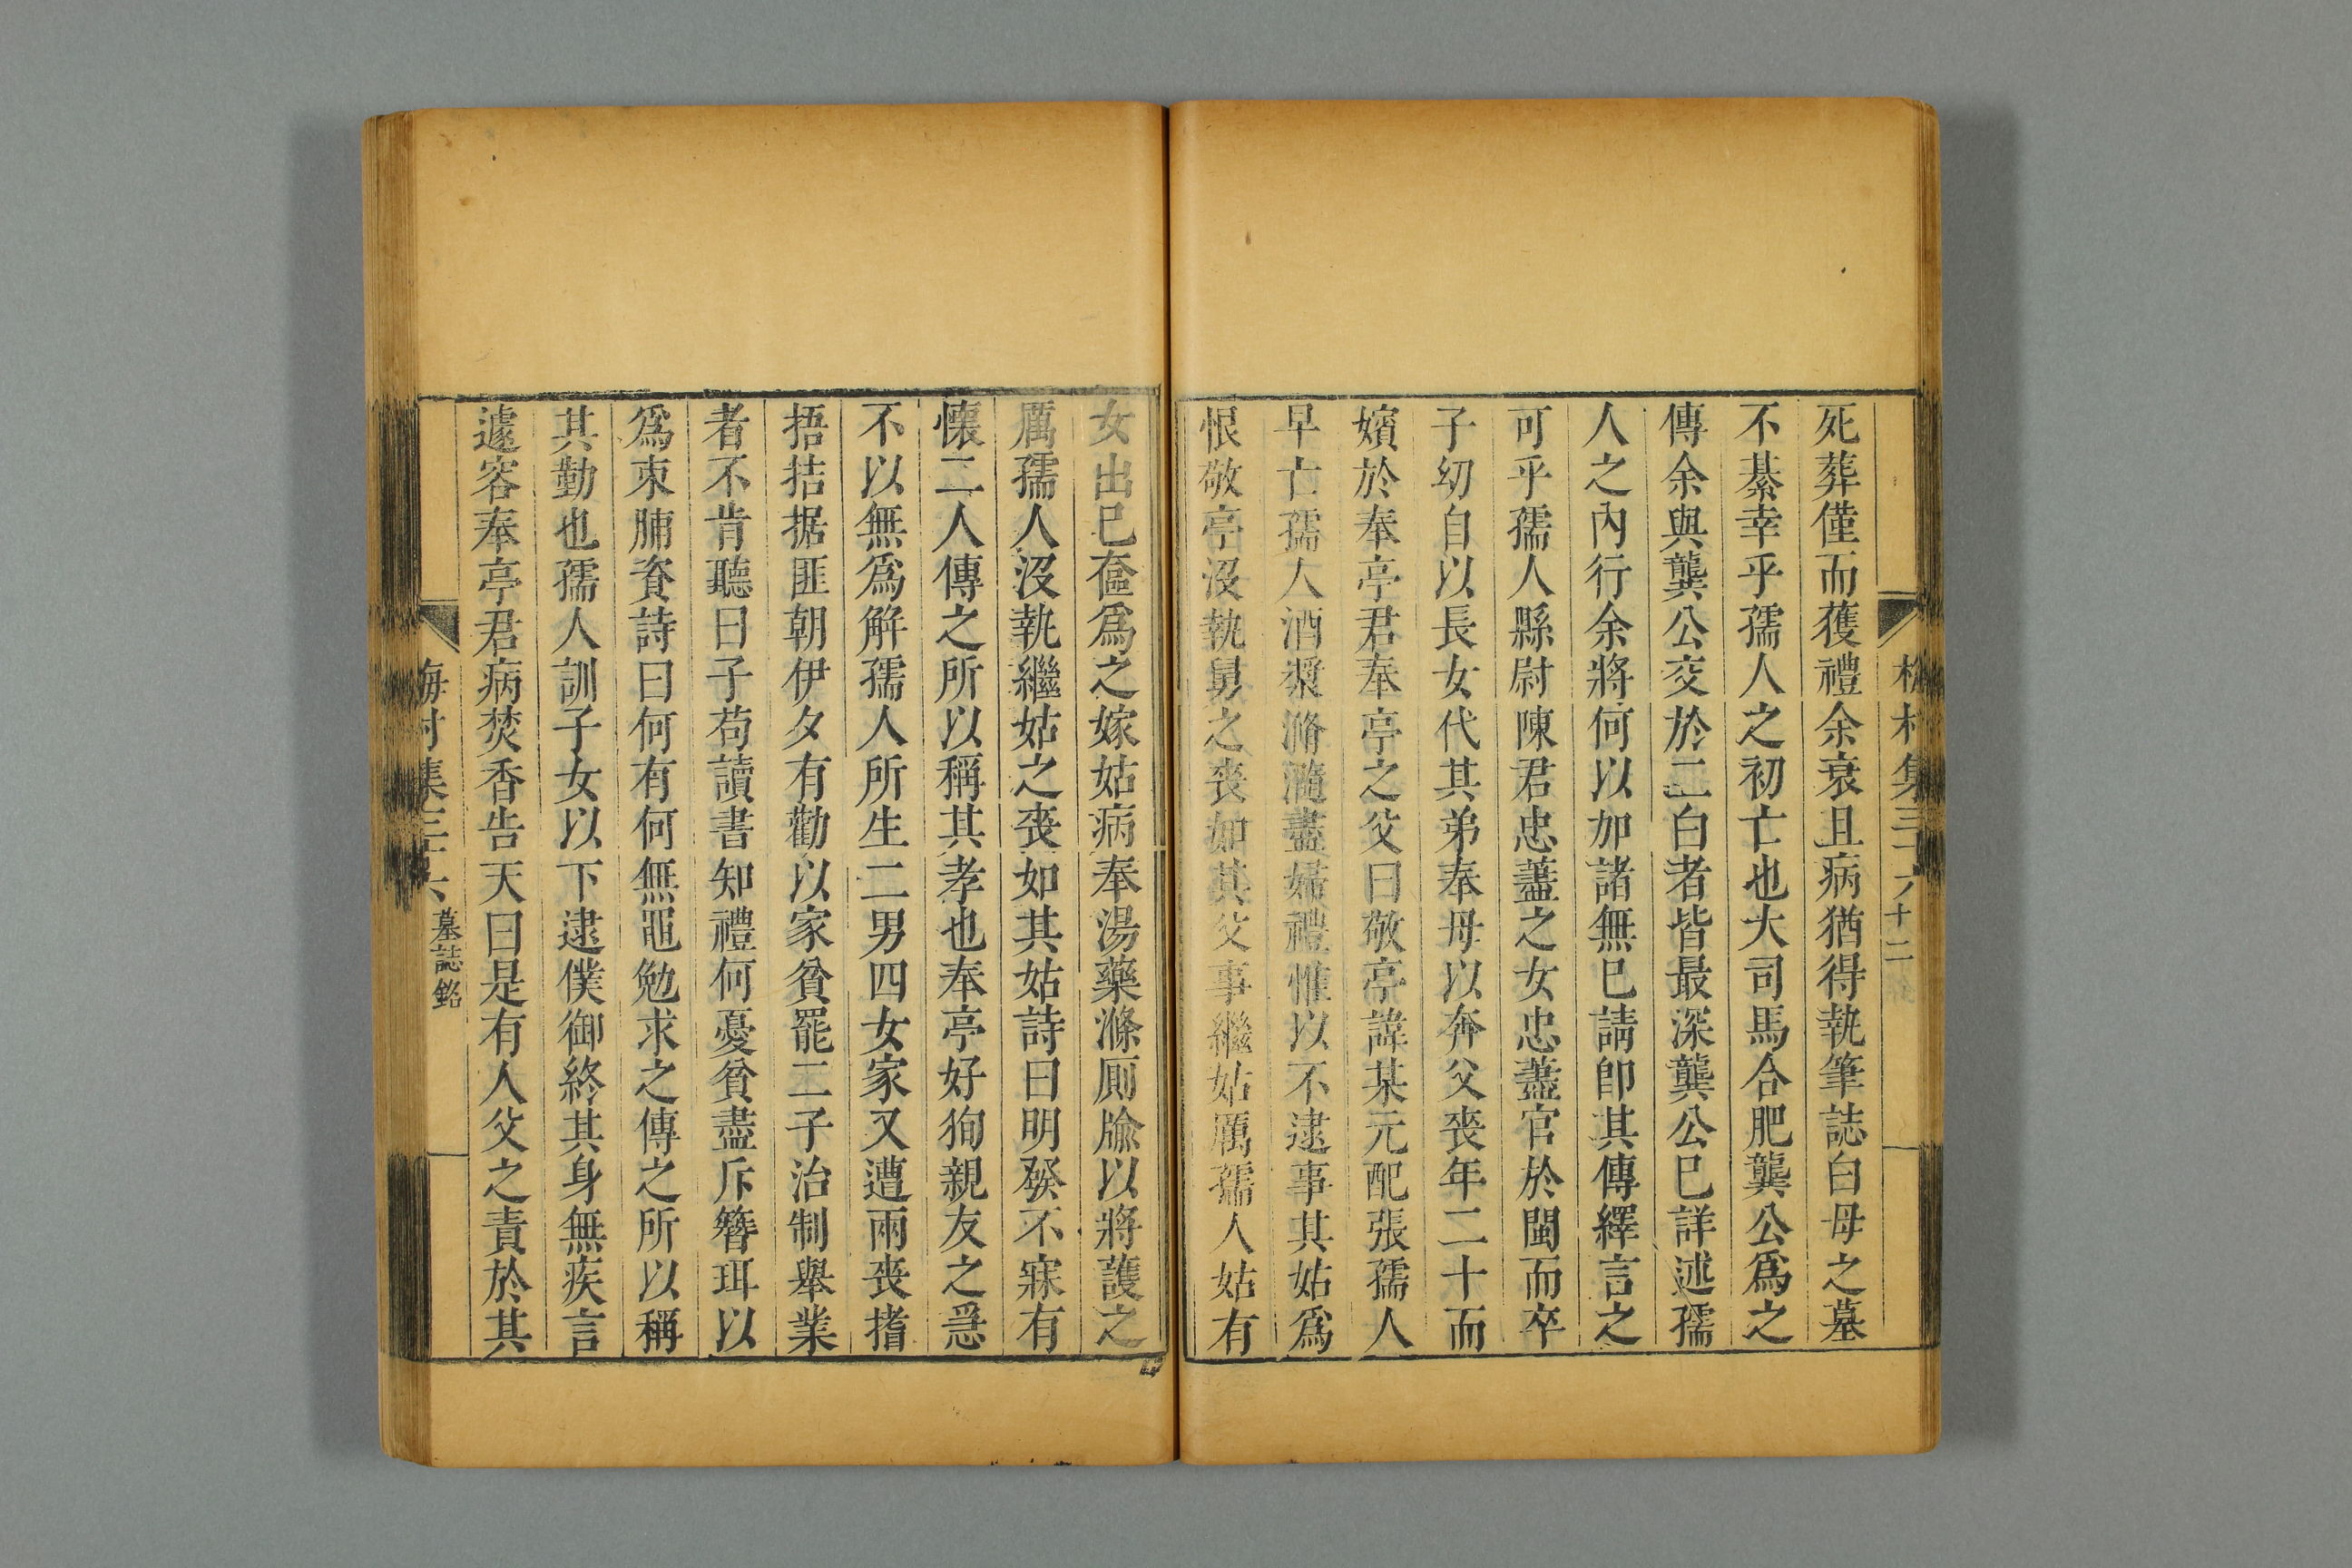 村集三十六
十二
死葬僅而獲禮余衰且病猶得執筆誌白母之墓
不綦幸乎孺人之初亡也大司馬合肥龔公爲之
傳余與龔公交於二白者皆最深龔公已詳述孺
人之內行余將何以加諸無已請卽其傳繹言之
可乎孺人縣尉陳君忠藎之女忠藎官於閩而卒
子幼自以長女代其弟奉母以奔父喪年二十而
嬪於奉亭君奉亭之父曰敬亭諱某元配張孺人
早亡孺人酒漿滫瀡盡婦禮惟以不逮事其姑爲
恨敬亭沒執舅之喪如其父事繼姑厲孺人姑有
女出已奩爲之嫁姑病奉湯藥滌厠牏以將護之
厲孺人沒執繼姑之喪如其姑詩曰明發不寐有
懷二人傳之所以稱其孝也奉亭好狥親友之急
不以無爲解孺人所生二男四女家又遭兩喪搘
捂拮据匪朝伊夕有勸以家貧罷二子治制舉業
者不肯聽曰子苟讀書知禮何憂貧盡斥簪珥以
爲束脯資詩曰何有何無黽勉求之傳之所以稱
其勤也孺人訓子女以下逮僕御終其身無疾言
遽容奉亭君病焚香告天曰是有人父之責於其
梅村集三十六
墓誌銘